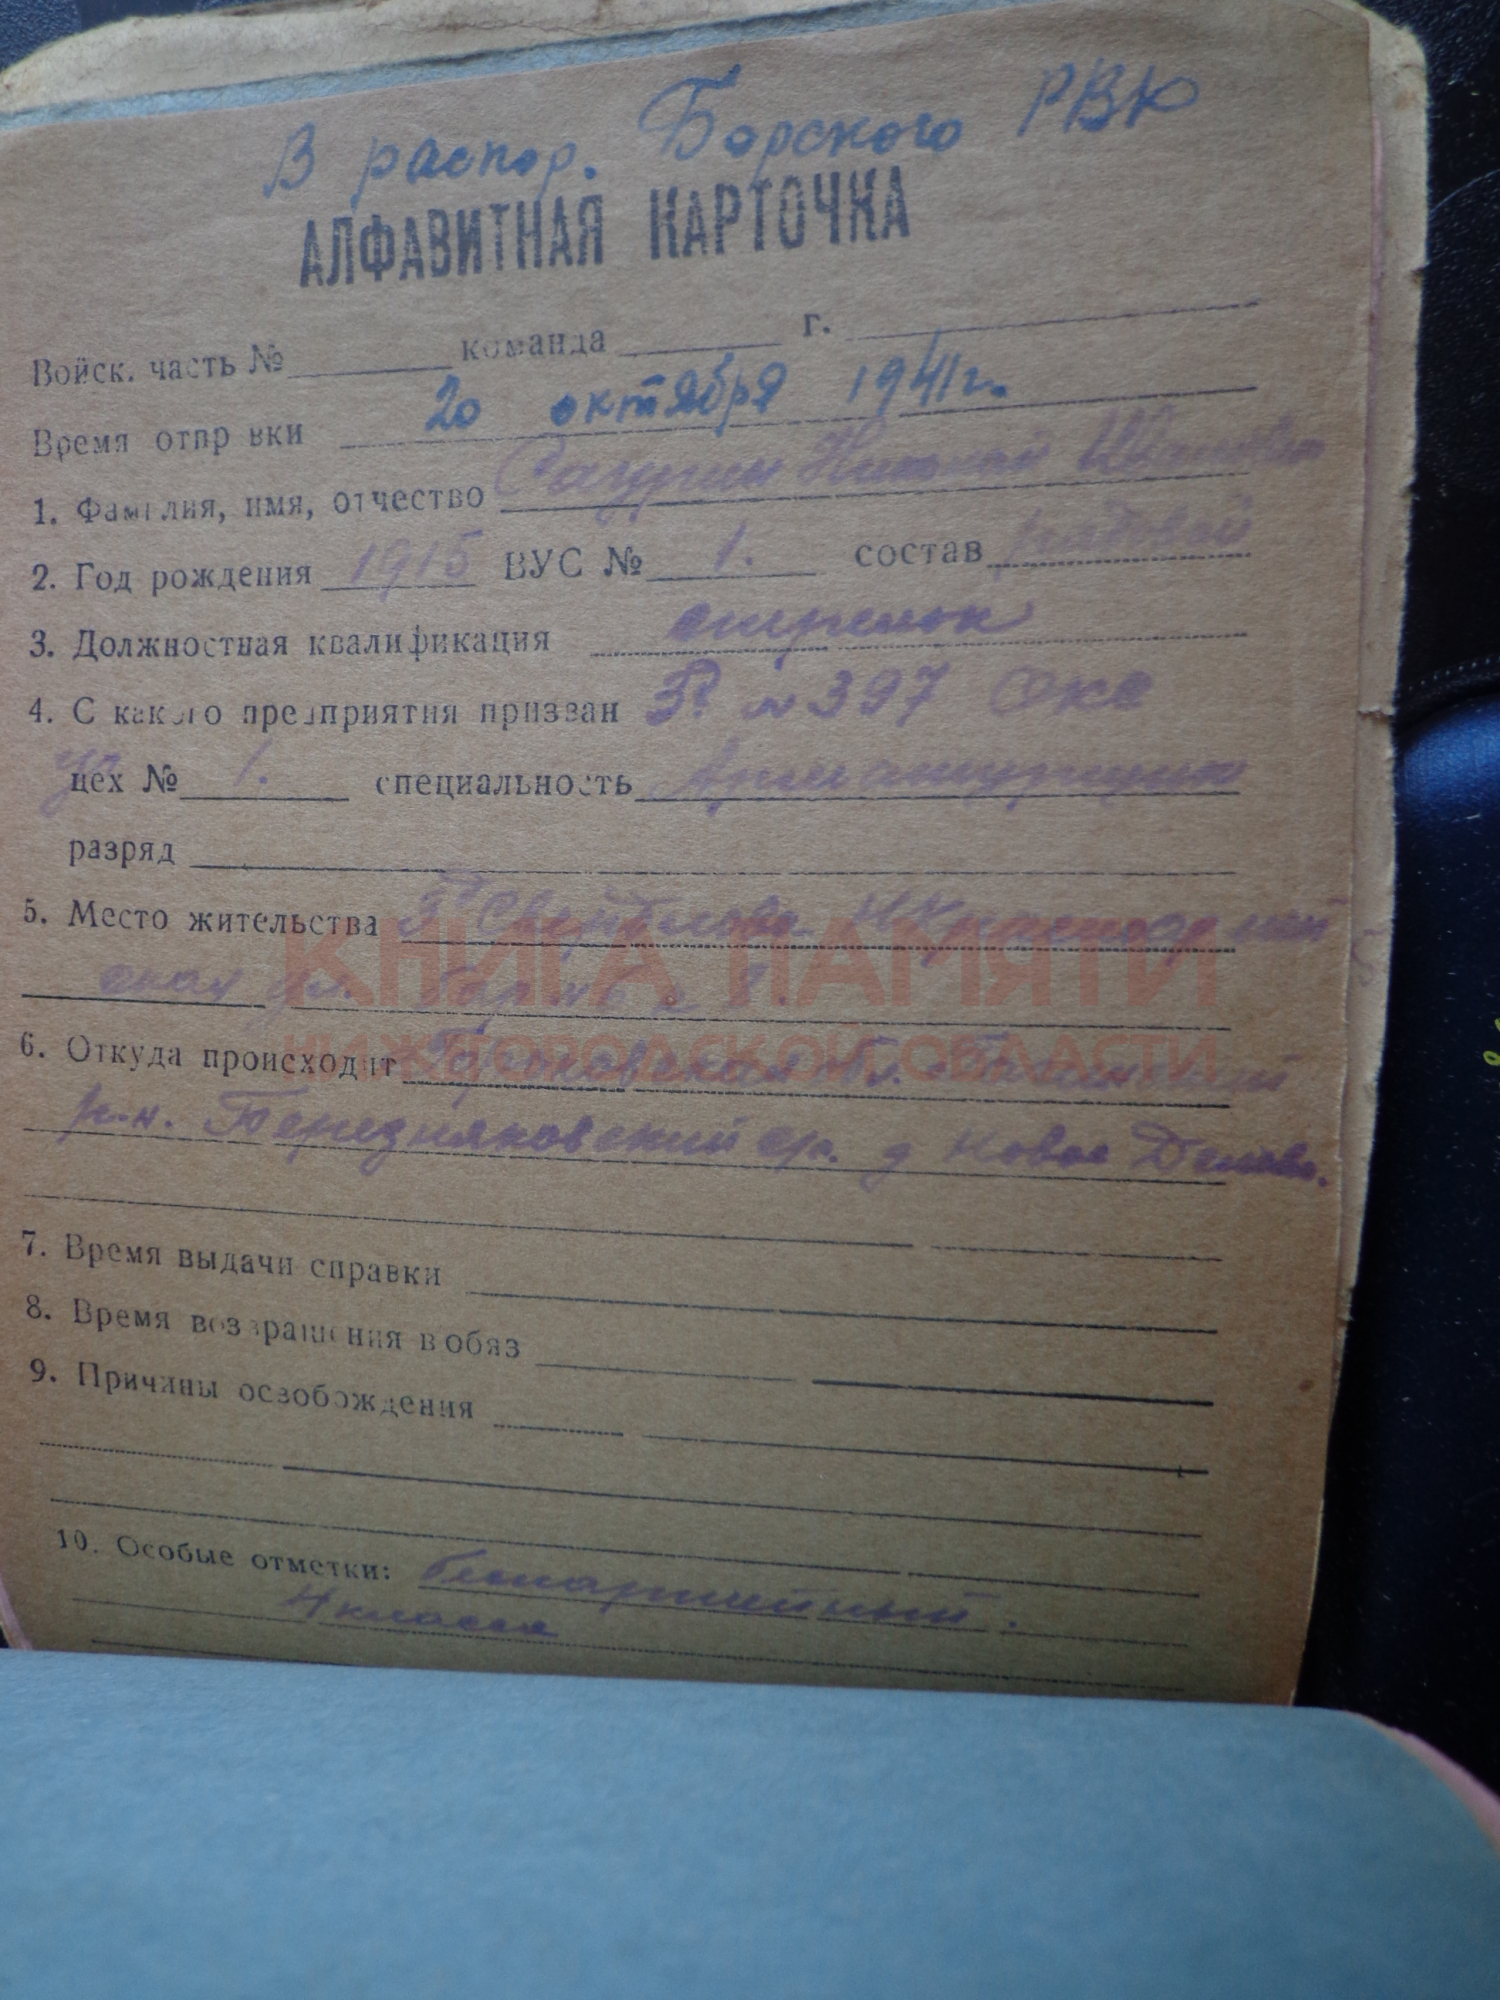 В распор. Борского РВК
АЛФАВИТНАЯ КАРТОЧКА
Войск. часть № команда г.
Время отпр вки 20 октября 1941 г.
1. Фамилия, имя, отчество Николай Иванович
2. Год рождения 1915 ВУС № 1. состав рядовой
3. Должностная квалификация стрелок
4. С какого предприятия призван № 397
цех № 1. специальность
разряд
5. Место жительства Свердлова
ул. 8.
КНИГА ПАМЯТИ
6. Откуда происходит Горьковская обл.
НИЖЕГОРОДСКОЙ ОБЛАСТИ
р-н. д Новое
7. Время выдачи справки
8. Время возвращения в обяз
9. Причины освобождения
10. Особые отметки: беспартийный.
4 класса